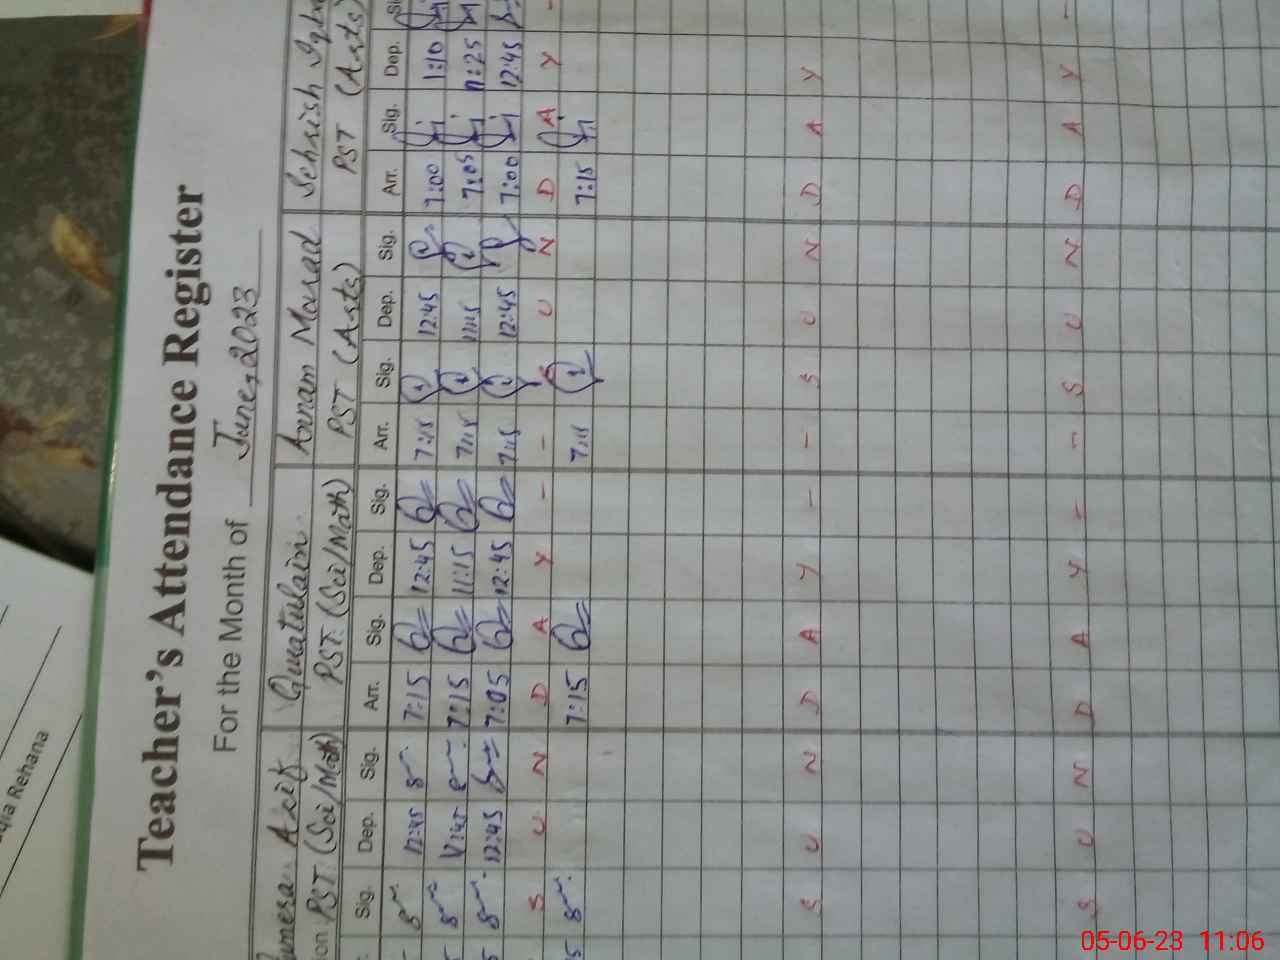 Teacher's Attendance Register
For the Month of June, 2023
Asif Quratulain Annam Murad Sehrish
PST (Sci/Math) PST. (Sci/Math) PST (Arts) PST (Arts)
Sig. Dep. Sig. Arr. Sig. Dep. Sig. Arr. Sig. Dep. Sig. Arr. Sig. Dep.
12:45 7:15 12:45 7:15 12:45 7:00 1:10
7:15 11:15 7:15 7:05 11:25
12:45 7:05 12:45 7:15 12:45 7:00 12:45
S U N D A Y - - S U N D A Y -
7:15 7:15 7:15
S U N D A Y - - S U N D A Y
S U N D A Y - - S U N D A Y -
Rehana
05-06-23 11:06